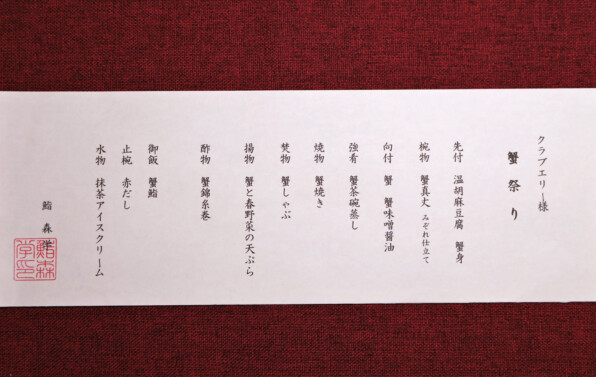 クラブエリー様
蟹祭り
先付 温胡麻豆腐 蟹身
椀物 蟹真丈 みぞれ仕立て
向付 蟹 蟹味噌醤油
強肴 蟹茶碗蒸し
焼物 蟹焼き
焚物 蟹しゃぶ
揚物 蟹と春野菜の天ぷら
酢物 蟹錦糸巻
御飯 蟹鮨
止椀 赤だし
水物 抹茶アイスクリーム
鮨 森